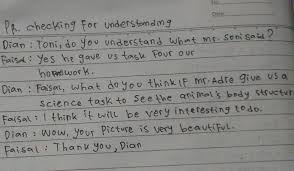 No
Date
PR. checking for understanding
Dian : Toni, do you understand what mr. soni said?
Faisal : Yes he gave us task four our
homework.
Dian : Faisal, what do you think if mr. Adre give us a
science task to see the animal's body structur
Faisal : I think it will be very interesting to do.
Dian : Wow, your picture is very beautiful.
Faisal : Thank you, Dian